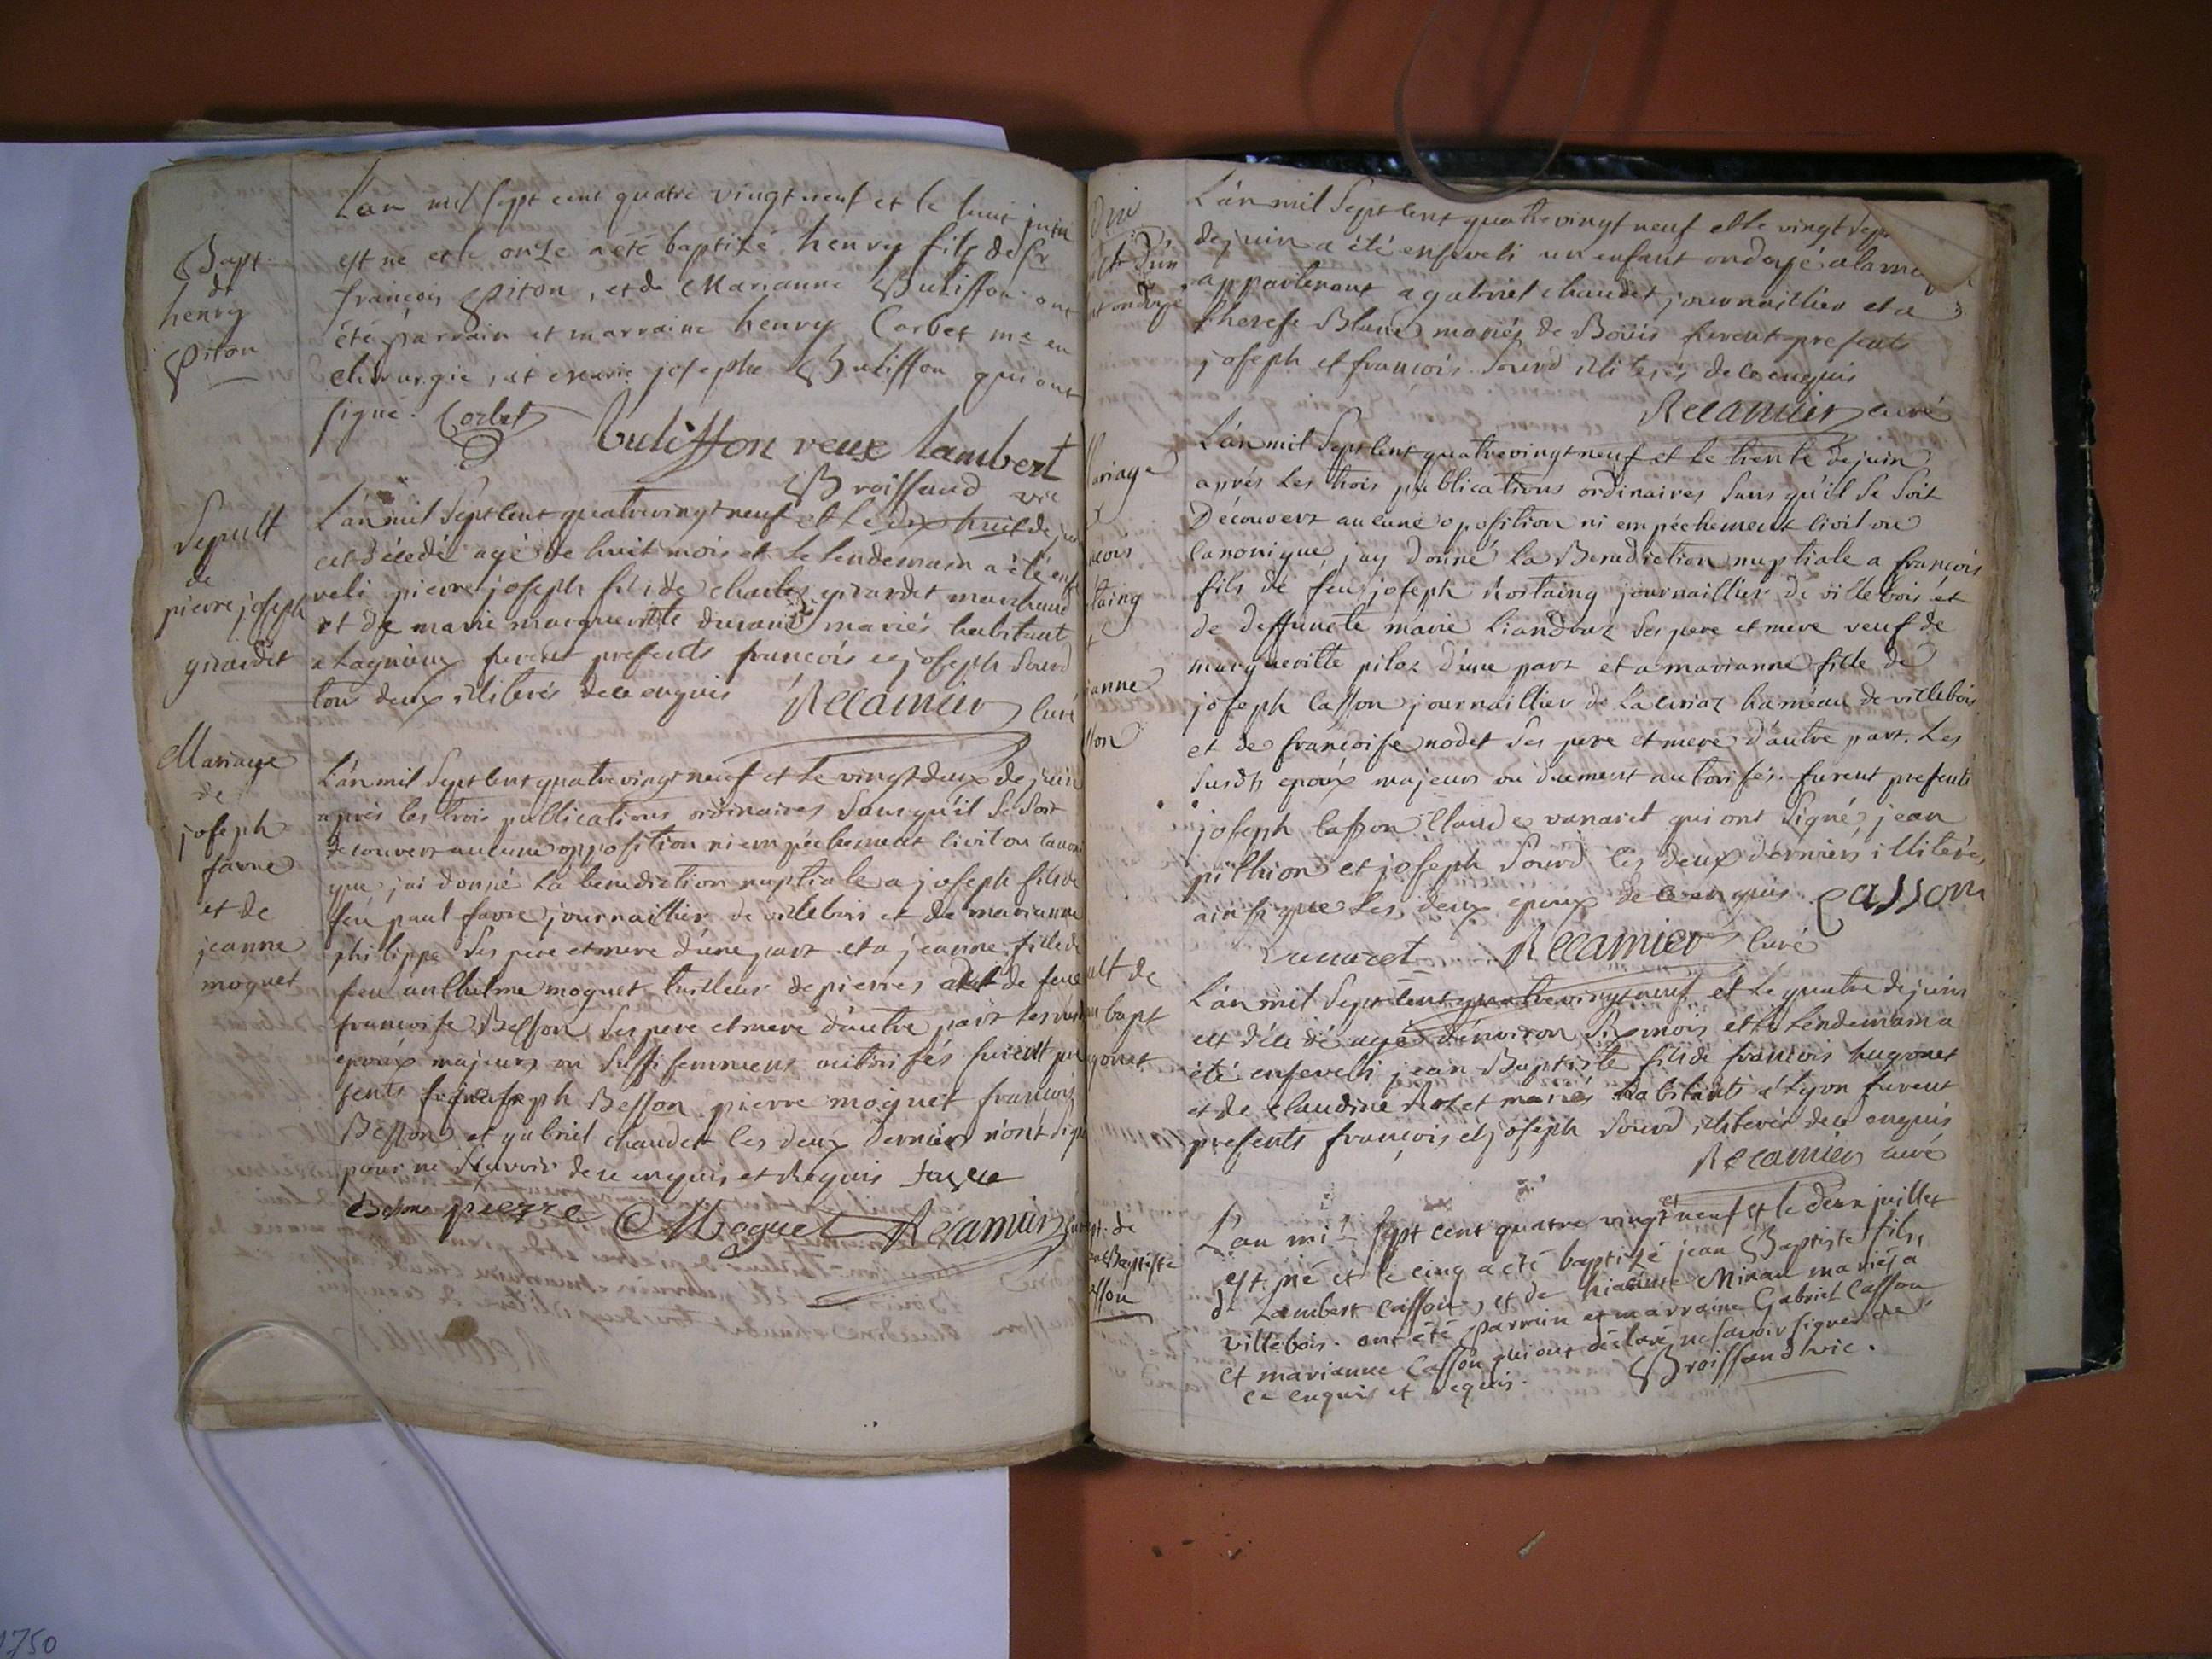 L'an mil sept cent quatre vingt neuf et le huit juin
Bapt
de
henry
Piton
est né et le onze a été baptizé henry fils de sr
françois Piton, et de Marianne Buliffon. ont
été parrain et marraine henry Corbet me en
chirurgie, et marie josephe Buliffon qui ont
signé. Corbet
buliffon veuve lambert
Broissand vic
Sepult
de
pierre joseph
girardet
L'an mil Sept Cent quatrevingt neuf et le dix huit de juin
est décédé agé de huit mois et le lendemain a été ense
veli pierre joseph fils de charles girardet marchand
et de marie margueritte durand mariés habitant
a Lagnieux furent presents françois et joseph Sourd
tous deux illiterés de ce enquis Récamier Curé
Mariage
de
joseph
favre
et de
jeanne
moguet
L'an mil Sept Cent quatrevingt neuf et le vingt deux de juin
après les trois publications ordinaires Sans qu'il se Soit
découvert aucune opposition ni empéchement Civil ou canoni
que j'ai donné la benediction nuptiale a joseph fils de
feu paul favre journaillier de villebois et de marianne
philippe Ses pere et mere d'une part et a jeanne fille de
feu anthelme moguet tailleur de pierres et de feue
françoise Besson Ses pere et mere d'autre part les susd
epoux majeurs ou Suffisemment autorisés furent pre
sents joseph Besson pierre moguet françois
Besson et gabriel chaudet les deux derniers n'ont Signé
pour ne Scavoir de ce enquis et Requis
Besson pierre Moguet Récamier Curé
un
ondoyé
L'an mil Sept Cent quatrevingt neuf et le vingt Sept
de juin a été enseveli un enfant ondoyé a la maison
appartenant a gabriel chaudet journaillier et a
therese Blanc mariés de Boüis furent presents
joseph et françois Sourd illiterés de ce enquis
Récamier curé
Mariage
L'an mil Sept Cent quatrevingt neuf et le trente de juin
aprés Les trois publications ordinaires Sans qu'il Se Soit
Découvert aucune oposition ni empéchement Civil ou
Canonique, j'ay donné La Benediction nuptiale a françois
fils de feu joseph Rostaing journaillier de villebois et
de deffuncte marie Liandraz Ses pere et mere veuf de
margueritte piloz d'une part et a marianne fille de
joseph Casson journaillier de La Cuiaz hameau de villebois
et de françoise nodet Ses pere et mere d'autre part. Les
Susdts epoux majeurs ou duement autorisés. furent presents
joseph Casson Claude vanaret qui ont Signé, jean
pithion et joseph Sourd les deux derniers illiterés
ainsi que Les deux epoux de ce enquis Casson
Vanaret Récamier Curé
ult de
bapt
gonet
L'an mil Sept Cent quatrevingt neuf et le quatre de juin
est décédé agé d'environ Six mois et le Lendemain a
été enseveli jean Baptiste fils de françois hugonet
et de claudine Rolet mariés habitants a Lyon furent
presents françois et joseph Sourd illiterés de ce enquis
Récamier curé
de
Baptiste
sson
L'an mil Sept cent quatre vingt neuf et le deux juillet
est né et le cinq a été baptizé jean Baptiste fils,
de Lambert Casson, et de hiacinte Minan mariés a
villebois. ont été parrain et marraine Gabriel Casson
et marianne Casson qui ont déclaré ne savoir signer de
ce enquis et requis. Broissand vic.
1750